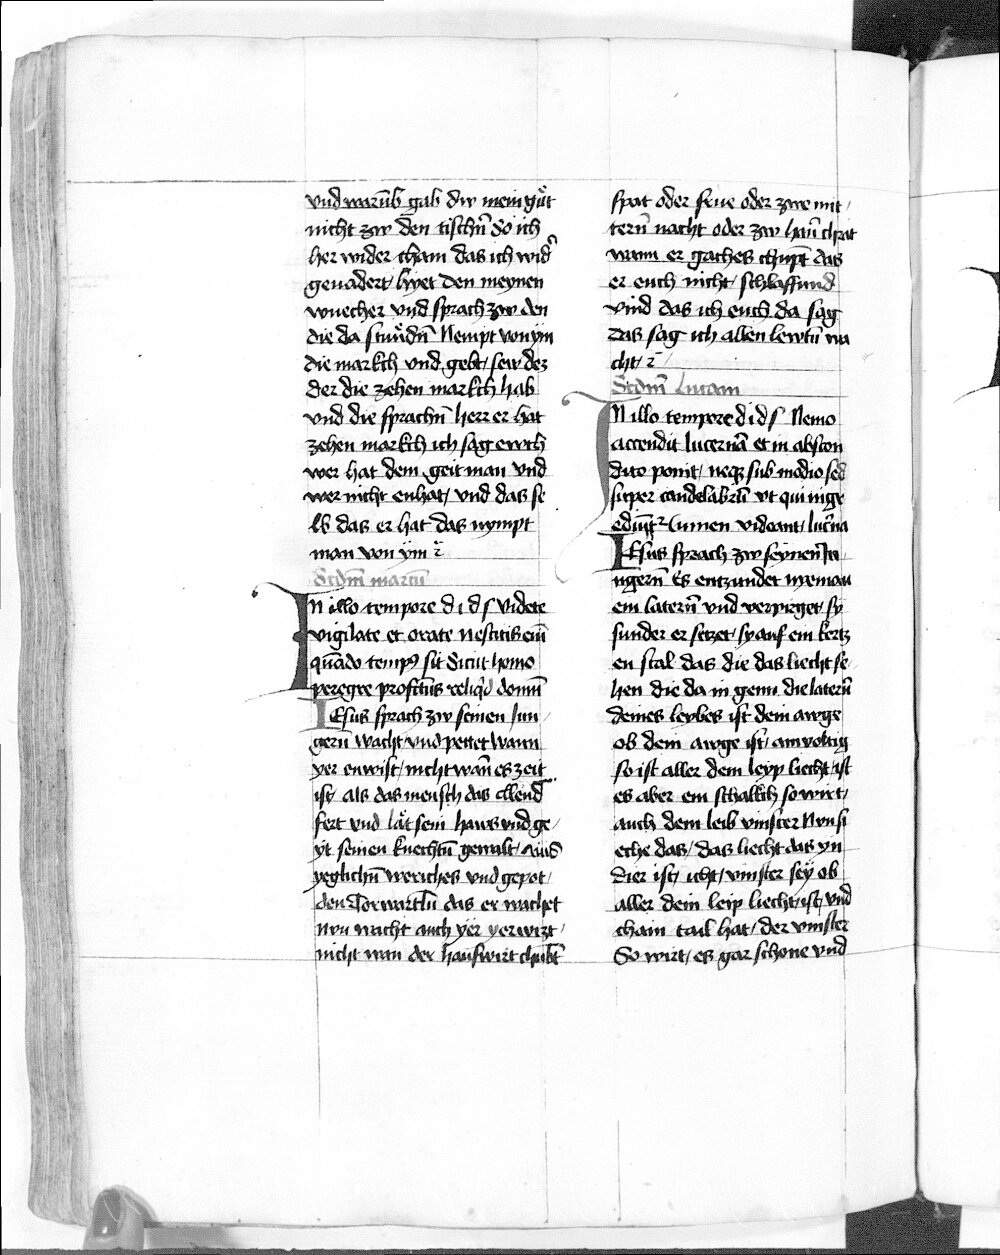 vnd warūb gab dw mein gůt
nicht zw den tischn̄ So ich
her wider cham das ich wid̾
geuadert / lyzet den meynen
wuecher vnd sprach zw den
die da stuͦndn̄ Nempt von ym
die markch vnd gebt / sew dez
der die zehen markch hab
vnd die sprachn̄ herr er hat
zehen markch ich sag ewch
wer hat dem geit man vnd
wer nicht enhat / vnd das se
lb das er hat das nympt
man von ym ꝛ̄
Scd̄m marcū
In illo tempore d i d s videte
vigilate et orate Nescitis eī
quādo tempꝰ sit Sicut homo
peregre profctūs reliqͥd domū
IEsus sprach zw seinen Jun
gern̄ wacht vnd pettet wann
yer enwist / nicht wan̄ es zeit
ist als das mensch das ellend
fert vnd lät sein haws vnd ge /
yt seinen knechtn̄ gewalt /
yeglichn̄ weriches vnd gepot /
den Torwartln̄ das er wachet
Nun wacht auch yer yer wizt /
nicht wan der hauswirt chūbt
spat oder frue oder zwe mit /
tern̄ nacht oder zw han̄ chrat
wann er gaches chūpt das
er euch nicht / schlaffund
vind das ich euch da sag
das sag ich allen lewtn̄ wa
cht / ꝛ̄ /
Scd̄m Lucam
In illo tempore d i d s Nemo
accendit lucernā et in abscon
dito ponit / neqꝫ sub modio sed
super candelabrū vt qui ingr
ediūt2 lumen videant / luc̾na
IEsus sprach zw seynen Ju
ngern̄ Es entzundet nyeman
ein latern̄ vnd verpirget / sy
sunder er setzet / sy auf ein kertz
en stal das die das liecht se
hen die da in genn die latern̄
deines leybes ist dein awge
ob dein awge ist / ainvoltig
so ist aller dein leyp liecht / ist
es aber ein schalkch so wirt /
auch dein leib vinster Nun si
eche das / das liecht das yn
dier ist / icht / vinster sey ob
aller dein leip liecht / ist / vnd
chain tail hat / der vinster
So wirt / es gar schone vnd